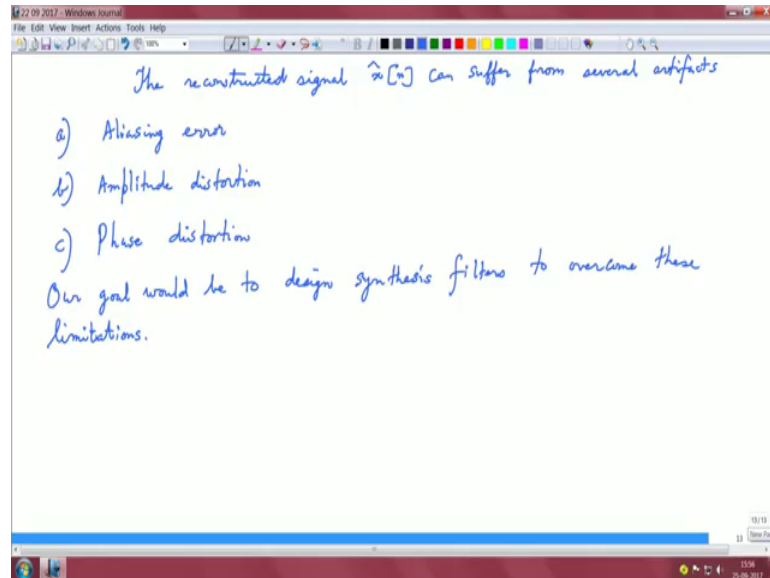 22 09 2017 - Windows Journal
File Edit View Insert Actions Tools Help
100%
The reconstructed signal x̂[n] can suffer from several artifacts
a) Aliasing error
b) Amplitude distortion
c) Phase distortion
Our goal would be to design synthesis filters to overcome these
limitations.
13/13
13
New Pa
15:56
25-09-2017